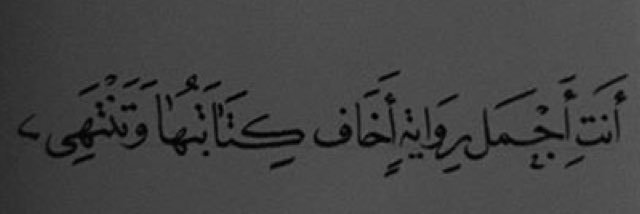 أَنتِ أَجْمَل رِوَاية أَخَاف كِتَابَتهُا وَتَنْتَهَي،